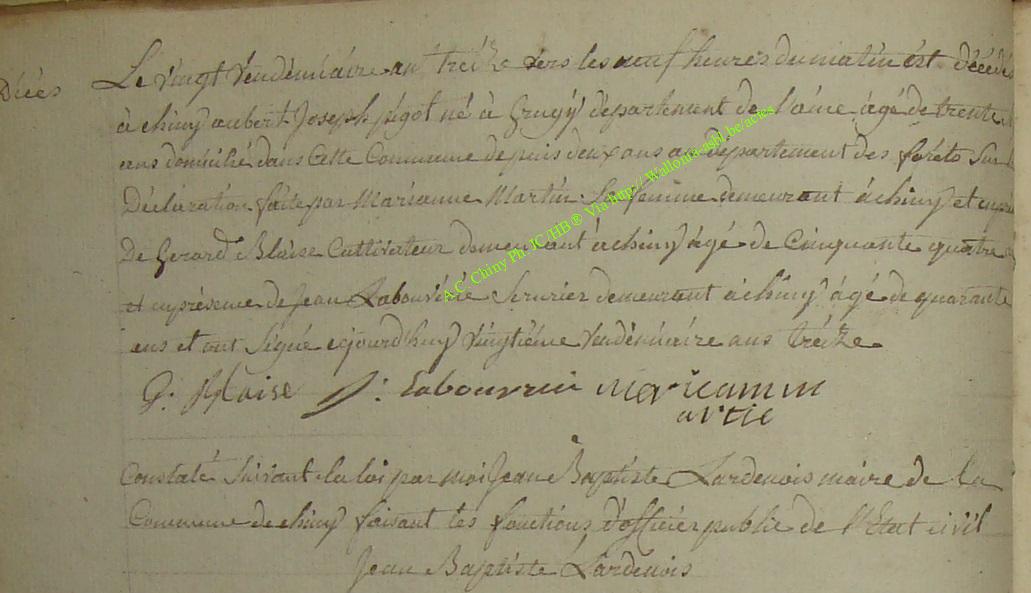 Décès
Le vingt vendémiaire an treize vers les neuf heures du matin est décédé
à chiny aubert Joseph pigot né à Grugÿ département de l'aine âgé de trente
ans domicilié dans Cette Commune depuis deux ans au département des foréts Sur
Déclaration faite par Marianne Martin Sa femme demeurant à chiny et
De Gerard Blaise Cultivateur demeurant à chiny âgé de Cinquante quatre
et en présence de Jean Labouvrié Serurier demeurant à chiny âgé de quarante
ans et ont Signé ejourdhuy vingtiéme vendémiaire ans treize
G: Blaise J: Labouvrie maricann m
artie
Constaté Suivant la loi par moi Jean Baptiste Lardenois maire de la
Commune de chiny faisant les fonctions d'officier public de l'Etat civil
Jean Baptiste Lardenois
A.C Chiny Ph. JC/HB® Via http:// Wallonia-asbl.be/actes